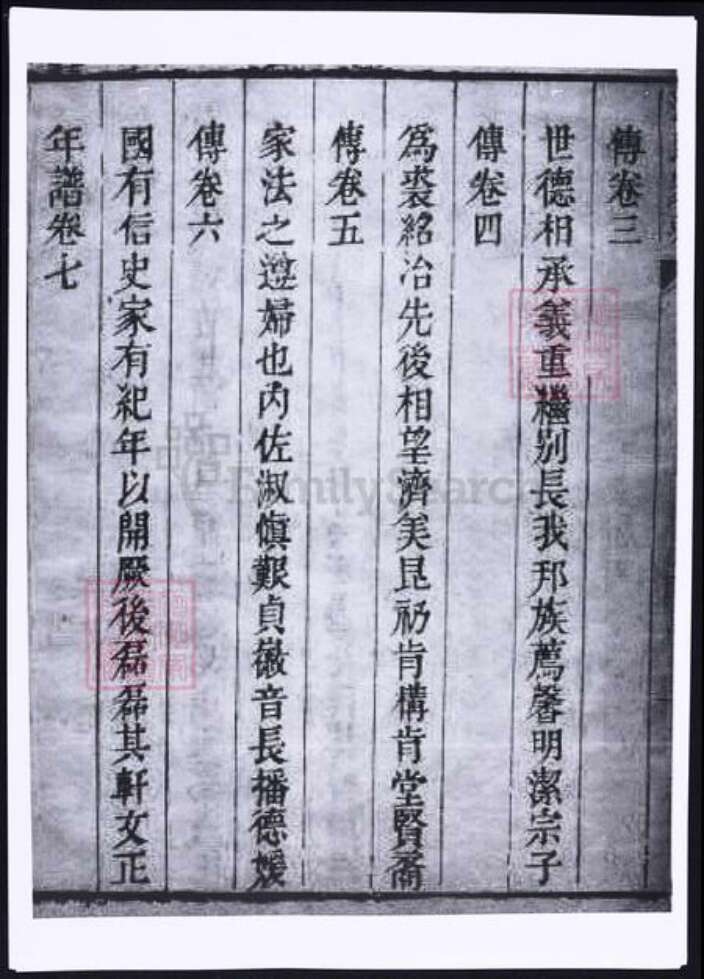 傳卷三
世德相承義重繼别長我邦族薦馨明潔宗子
傳卷四
為裘紹冶先後相望濟美昆礽肯構肯堂賢裔
傳卷五
家法之遵婦也内佐淑慎艱貞徽音長播德媛
傳卷六
國有信史家有紀年以開厥後磊磊其軒女正
年譜卷七
FamilySearch